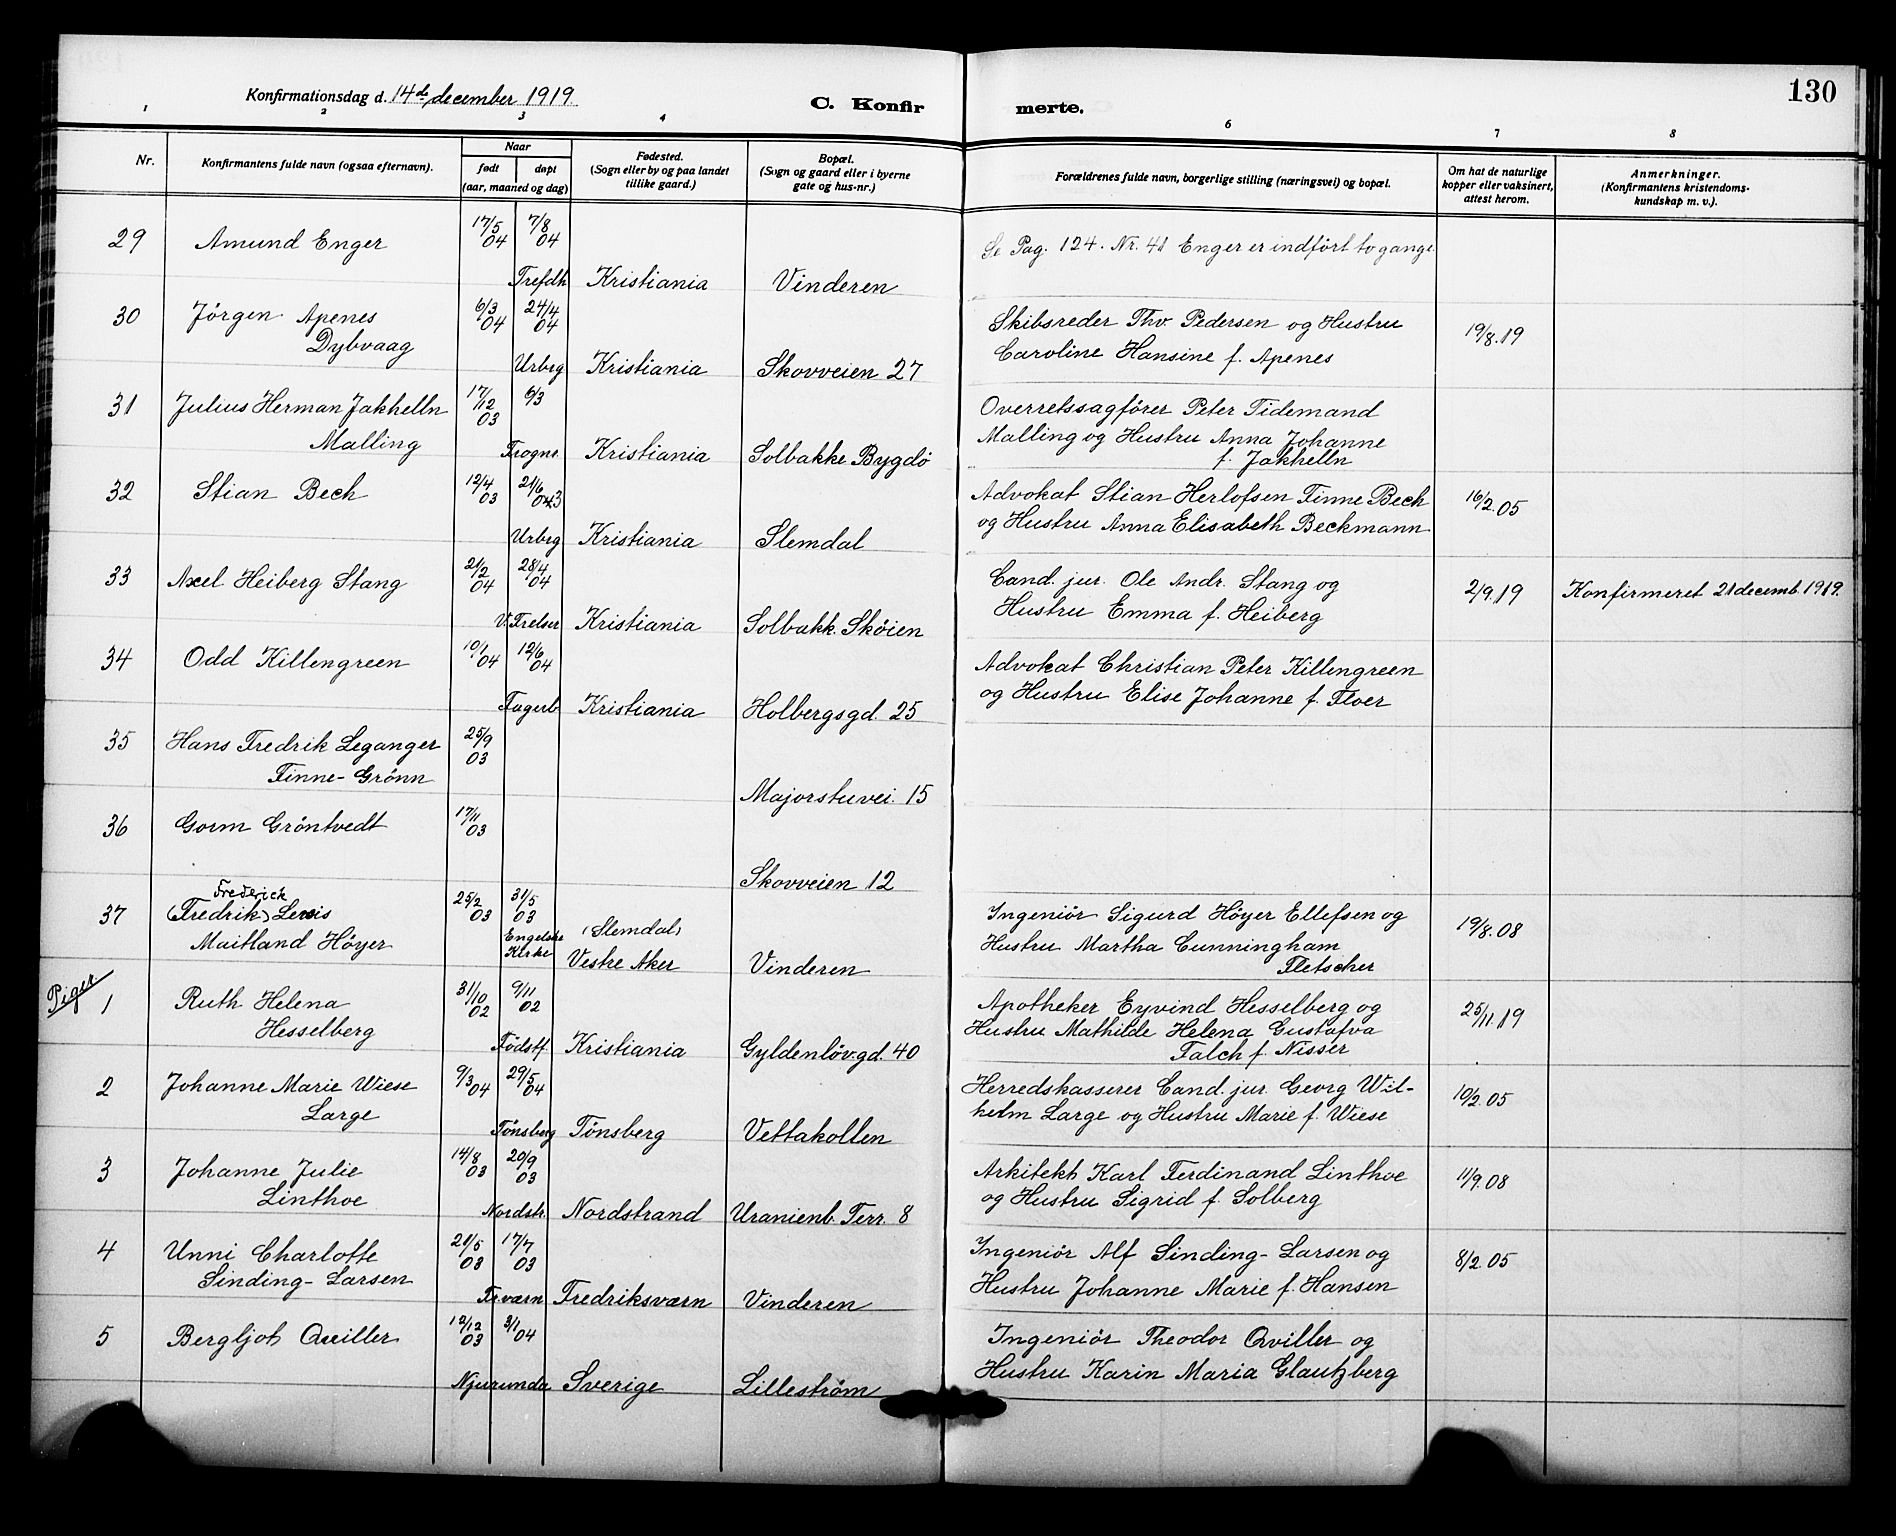 130
Konfirmationsdag d. 14de december 1919.
C. Konfirmerte.
1 2 3 4 6 7 8
Nr.
Konfirmantens fulde navn (ogsaa efternavn).
Naar
født
døpt
(aar, maaned og dag)
Fødested.
(Sogn eller by og paa landet
tillike gaard.)
Bopæl.
(Sogn og gaard eller i byerne
gate og hus-nr.)
Forældrenes fulde navn, borgerlige stilling (næringsvei) og bopæl.
Om hat de naturlige
kopper eller vaksinert,
attest herom.
Anmerkninger.
(Konfirmantens kristendoms-
kundskap m. v.).
29 Amund Enger 17/5 04 7/8 04 Se Pag. 124. Nr. 41 Enger er indført to gange.
Trefdh Kristiania Vinderen
30 Jörgen Apenes 6/3 04 24/4 04 Skibsreder Thv. Pedersen og Hustru 19/8.19
Dybvaag Caroline Hansine f. Apenes
Urbrg Kristiania Skovveien 27
31 Julius Herman Jakhelln 17/12 03 6/3 Overretssagförer Peter Tidemand
Malling Malling og Hustru Anna Johanne
Frogner Kristiania Solbakke Bygdö f. Jakhelln
32 Stian Bech 12/4 03 21/6 03 Advokat Stian Herlofsen Finne Bech 16/2.05
og Hustru Anna Elisabeth Beckmann
Urbrg Kristiania Slemdal
33 Axel Heiberg Stang 21/2 04 28/4 04 Cand. jur. Ole Andr. Stang og 2/9.19 Konfirmeret 21 decemb. 1919.
Hustru Emma f. Heiberg
V. Frelser Kristiania Solbakk. Sköien
34 Odd Killengreen 10/1 04 12/6 04 Advokat Christian Peter Killengreen
og Hustru Elise Johanne f. Floer
Fagerb Kristiania Holbergsgd. 25
35 Hans Fredrik Leganger 25/9 03
Finne-Grönn
Majorstuvei. 15
36 Gorm Gröntvedt 17/11 03
Skovveien 12
Frederick
37 (Fredrik) Lewis 25/2 03 31/5 03 Ingeniör Sigurd Höyer Ellefsen og 19/8.08
Maitland Höyer Engelske Kirke (Slemdal) Hustru Martha Cunningham
Vestre Aker Vinderen Fletscher
Piger
1 Ruth Helena 31/10 02 9/11 02 Apotheker Eyvind Hesselberg og 25/11.19
Hesselberg Hustru Mathilde Helena Gustafva
Födstf. Kristiania Gyldenlöv.gd. 40 Falch f. Nisser
2 Johanne Marie Wiese 9/3 04 29/5 04 Herredskasserer Cand. jur. Georg Wil- 10/2.05
Large helm Large og Hustru Marie f. Wiese
Tönsberg Tönsberg Vettakollen
3 Johanne Julie 14/8 03 20/9 03 Arkitekt Karl Ferdinand Linthoe 11/9.08
Linthoe og Hustru Sigrid f. Solberg
Nordstr. Nordstrand Uranienb. Terr. 8
4 Unni Charlotte 21/5 03 17/7 03 Ingeniör Alf Sinding-Larsen og 8/2.05
Sinding-Larsen Hustru Johanne Marie f. Hansen
Fr.værn Fredriksværn Vinderen
5 Bergljot Qviller 12/12 03 3/1 04 Ingeniör Theodor Qviller og
Hustru Karin Maria Glautzberg
Njurunda Sverige Lilleström